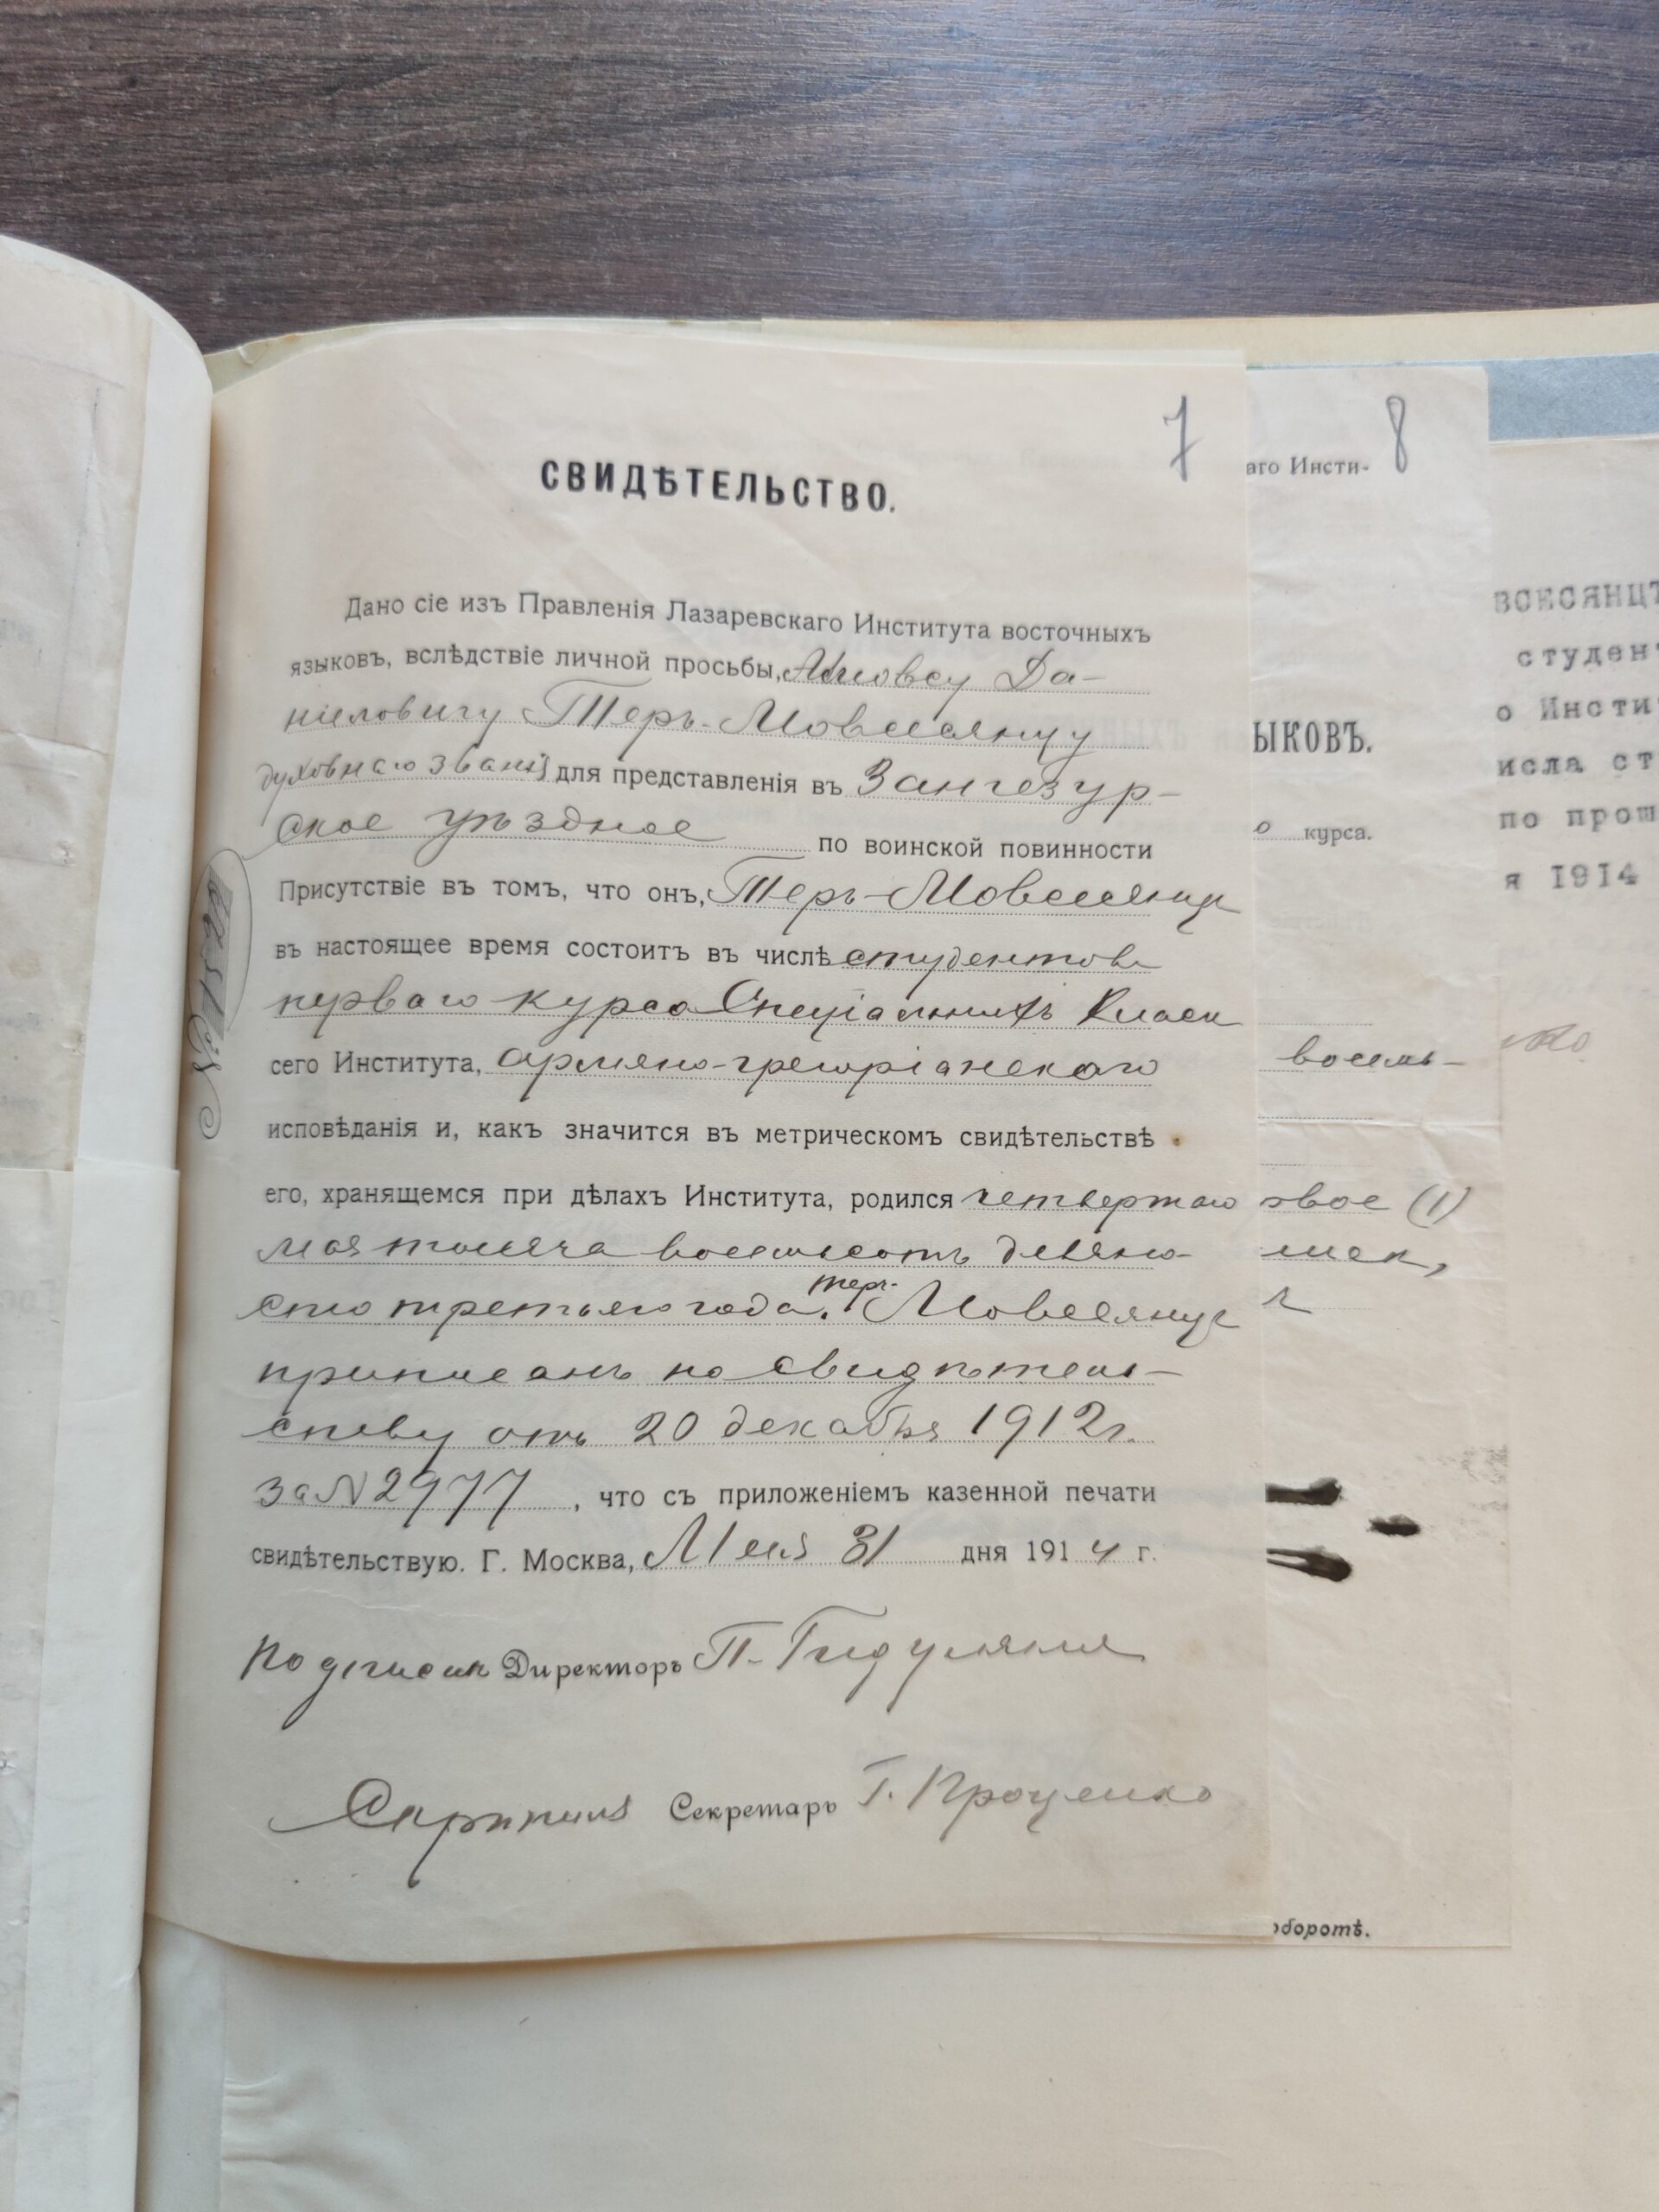 7
СВИДѢТЕЛЬСТВО.
Дано сіе изъ Правленія Лазаревскаго Института восточныхъ
языковъ, вслѣдствіе личной просьбы, Ашовсу Да-
ніиловичу Теръ-Мовсесянцу
духовнаго званія для представленія въ Зангезур-
ское уѣздное по воинской повинности
Присутствіе въ томъ, что онъ, Теръ-Мовсесянцъ
въ настоящее время состоитъ въ числѣ студентовъ
перваго курса Спеціальныхъ Классов
сего Института, армяно-грегоріанскаго
исповѣданія и, какъ значится въ метрическомъ свидѣтельствѣ
его, хранящемся при дѣлахъ Института, родился четвертаго
мая тысяча восемьсотъ девяно-
сто третьяго года. Теръ-Мовсесянцъ
приписанъ по свидѣтель-
ству отъ 20 декабря 1912 г.
за N 2977, что съ приложеніемъ казенной печати
свидѣтельствую. Г. Москва, Мая 31 дня 1914 г.
Подписалъ Директоръ П. Гидуляновъ
Скрѣпилъ Секретарь Г. Проценко
8
аго Инсти-
ЫКОВЪ.
о курса.
восемь-
овое (1)
оборотѣ.
студен
о Инсти
исла ст
по прош
я 1914